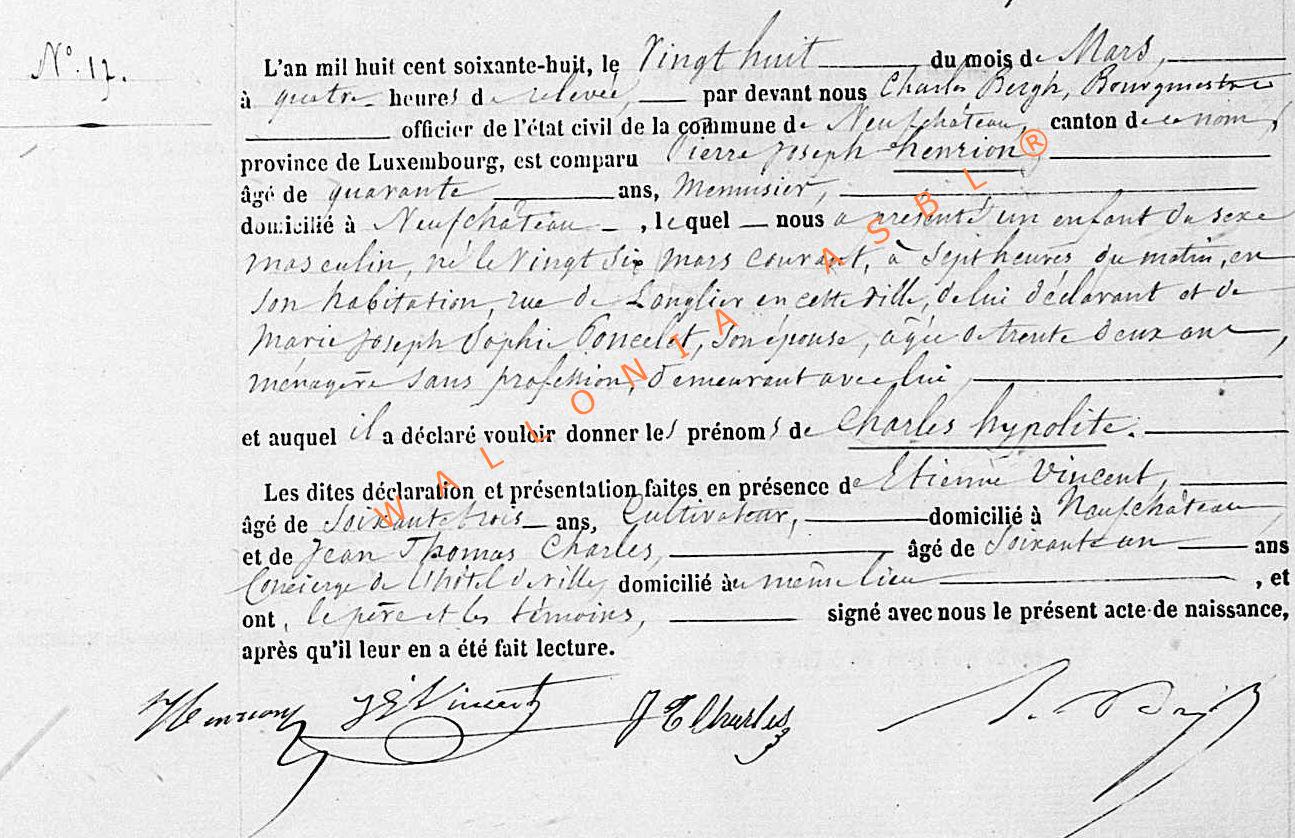 N° 17.
L'an mil huit cent soixante-huit, le Vingt huit du mois de Mars,
à quatre heures de relevée, par devant nous Charles Bergh, Bourgmestre
officier de l'état civil de la commune de Neufchâteau, canton de ce nom,
province de Luxembourg, est comparu Pierre Joseph henrion,
âgé de quarante ans, Menuisier,
domicilié à Neufchâteau, lequel nous a présenté un enfant du sexe
masculin, né le Vingt Six mars courant, à Sept heures du matin, en
son habitation, rue de Longlier en cette ville, de lui déclarant et de
Marie Joseph Sophie Poncelet, son épouse, agée de trente deux ans,
ménagère sans profession, demeurant avec lui,
et auquel il a déclaré vouloir donner les prénoms de Charles hypolite.
Les dites déclaration et présentation faites en présence de Etienne Vincent,
âgé de Soixante trois ans, Cultivateur, domicilié à Neufchâteau,
et de Jean Thomas Charles, âgé de Soixante un ans
Concierge de l'hôtel de ville, domicilié au même lieu, et
ont, le père et les témoins, signé avec nous le présent acte de naissance,
après qu'il leur en a été fait lecture.
Henrion JE Vincent JT Charles
WALLONIA ASBL ®